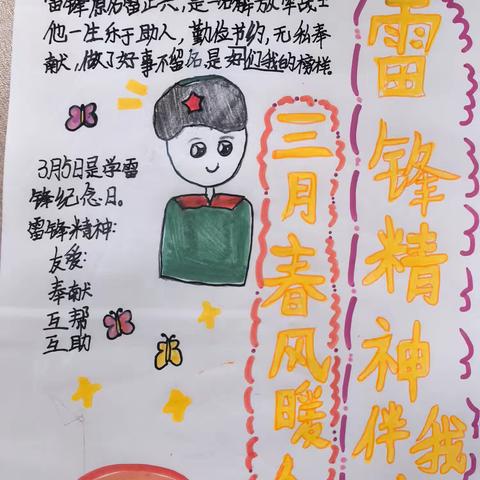 雷锋原名雷正兴，是一名解放军战士
他一生乐于助人，勤俭节约，无私奉
献，做了好事不留名是我们的榜样。
3月5日是学雷
锋纪念日。
雷锋精神：
友爱
奉献
互帮
互助
三月春风暖
雷锋精神伴我